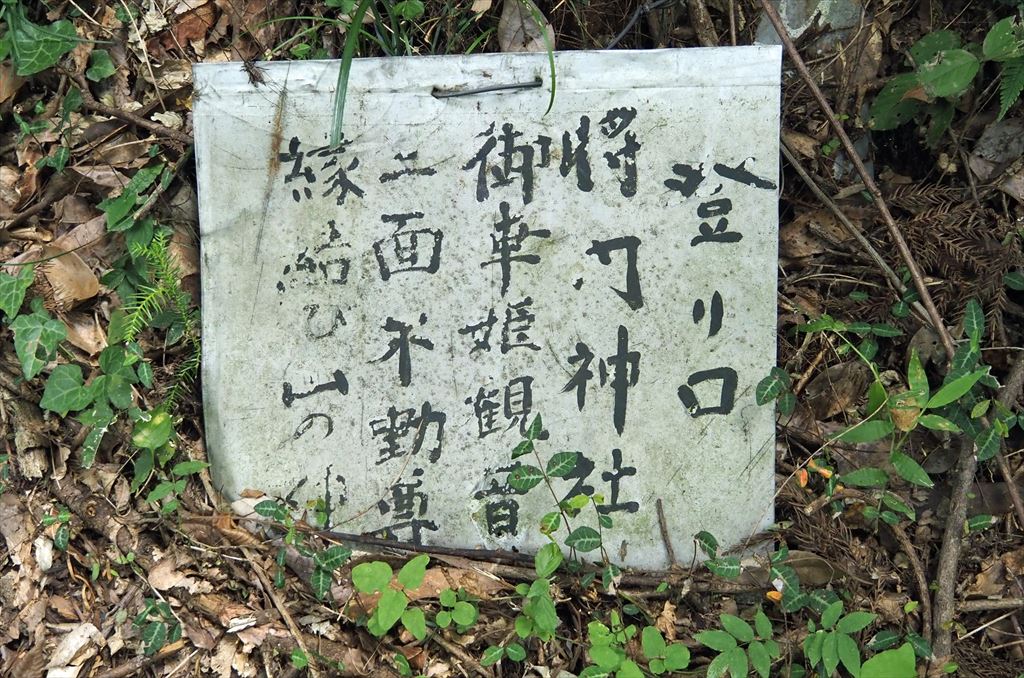 登リ口
將门神社
御車姫観音
二面不動尊
縁結び山の神